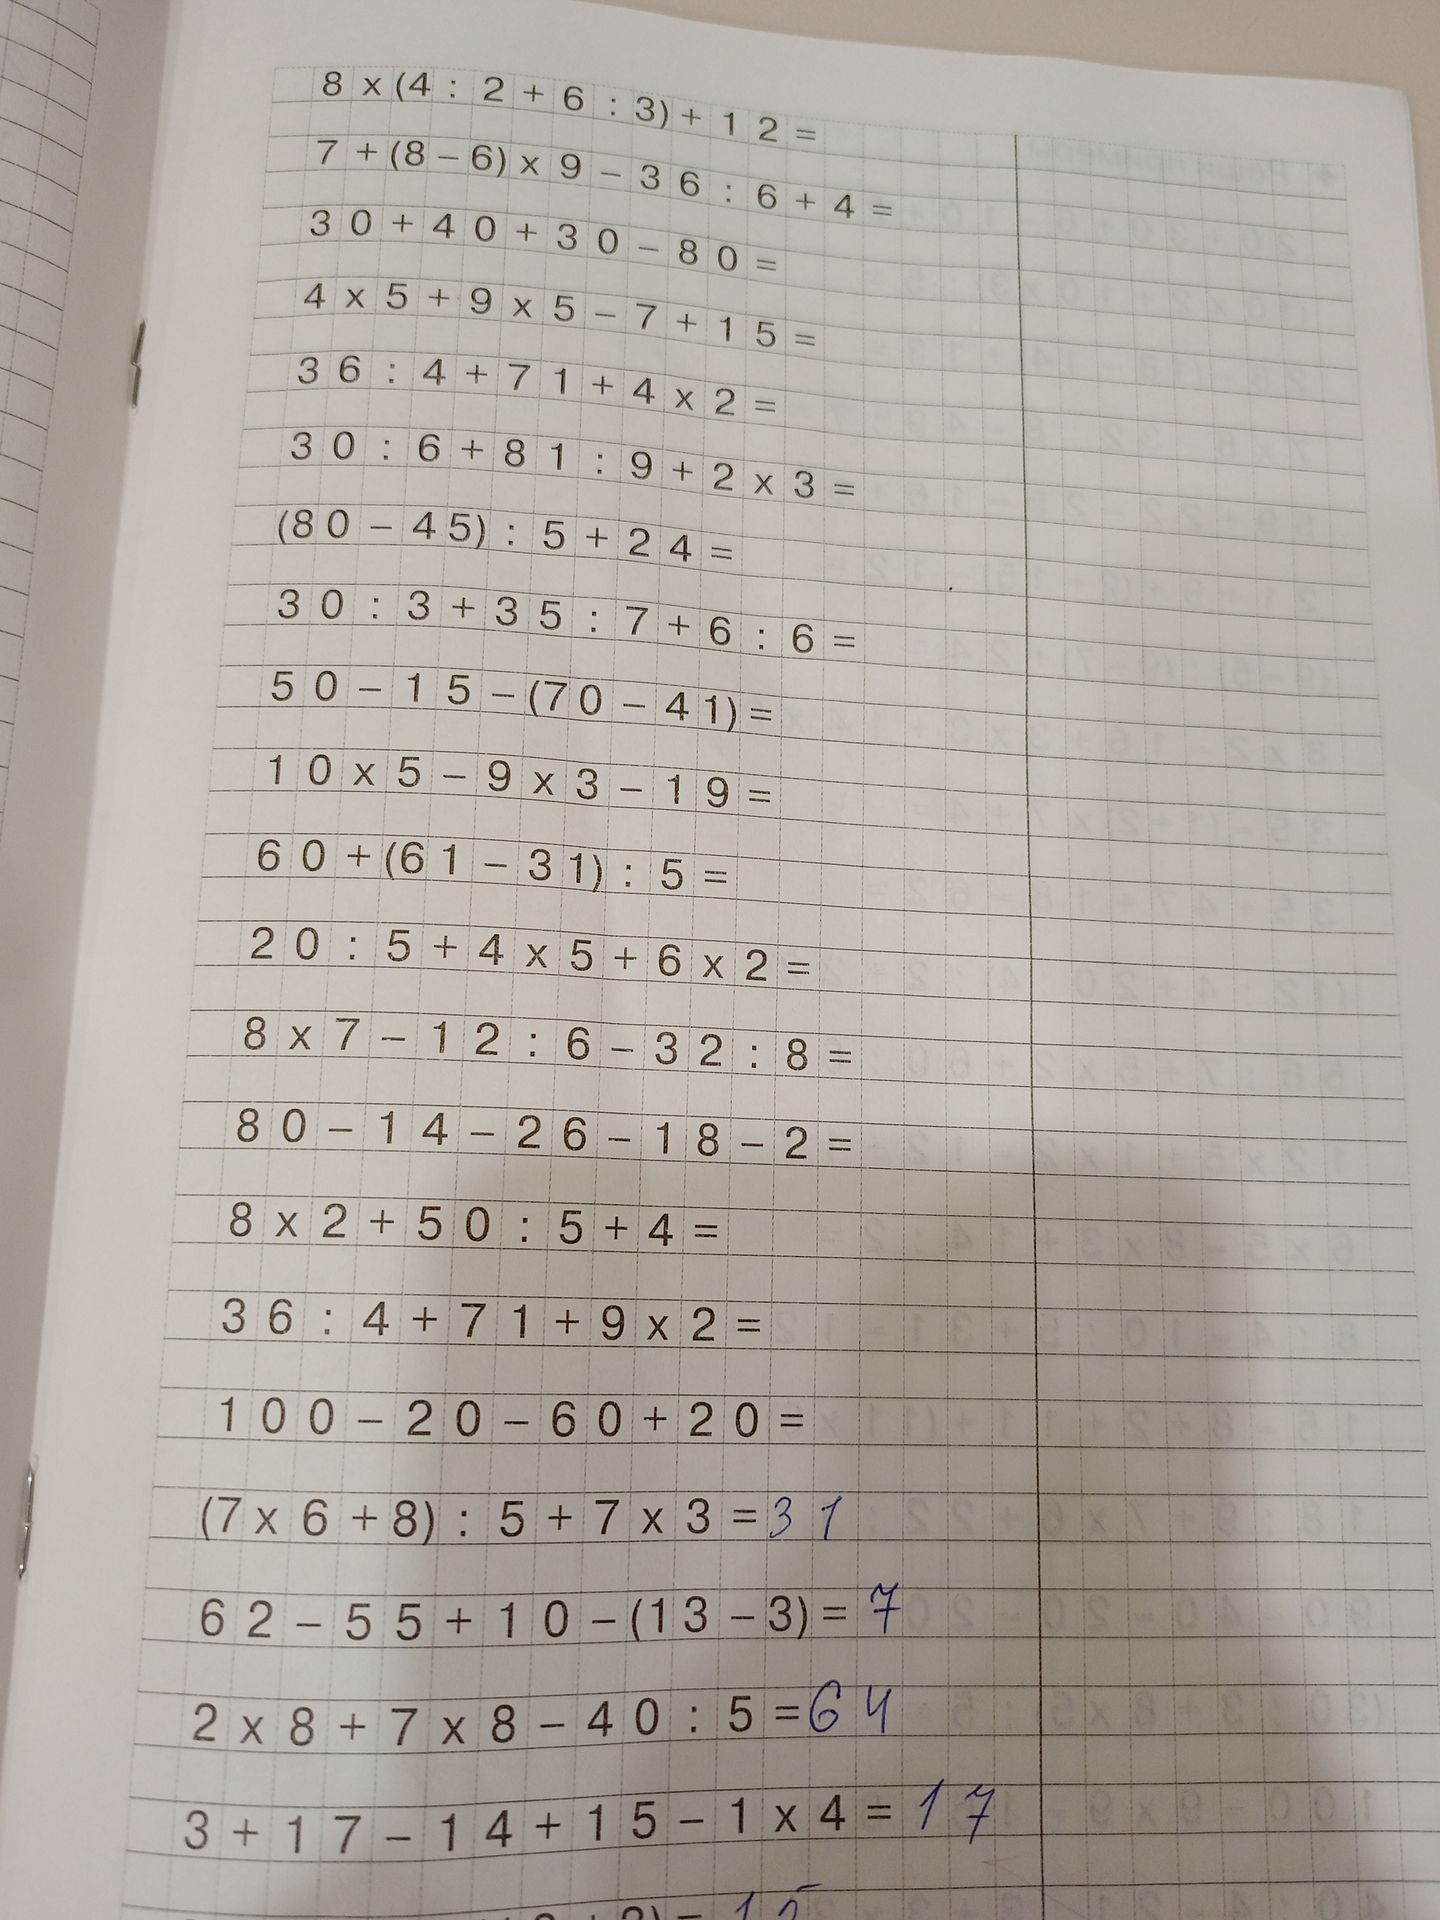 8 x (4 : 2 + 6 : 3) + 12 =
7 + (8 – 6) x 9 – 36 : 6 + 4 =
30 + 40 + 30 – 80 =
4 x 5 + 9 x 5 – 7 + 15 =
36 : 4 + 71 + 4 x 2 =
30 : 6 + 81 : 9 + 2 x 3 =
(80 – 45) : 5 + 24 =
30 : 3 + 35 : 7 + 6 : 6 =
50 – 15 – (70 – 41) =
10 x 5 – 9 x 3 – 19 =
60 + (61 – 31) : 5 =
20 : 5 + 4 x 5 + 6 x 2 =
8 x 7 – 12 : 6 – 32 : 8 =
80 – 14 – 26 – 18 – 2 =
8 x 2 + 50 : 5 + 4 =
36 : 4 + 71 + 9 x 2 =
100 – 20 – 60 + 20 =
(7 x 6 + 8) : 5 + 7 x 3 = 31
62 – 55 + 10 – (13 – 3) = 7
2 x 8 + 7 x 8 – 40 : 5 = 64
3 + 17 – 14 + 15 – 1 x 4 = 17